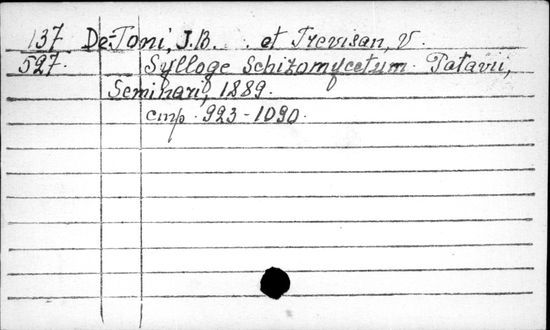 137 De-Toni, J.B. et Trevisan, V.
527. Sylloge Schizomycetum. Patavii,
Seminarj, 1889.
cmp. 923-1090.